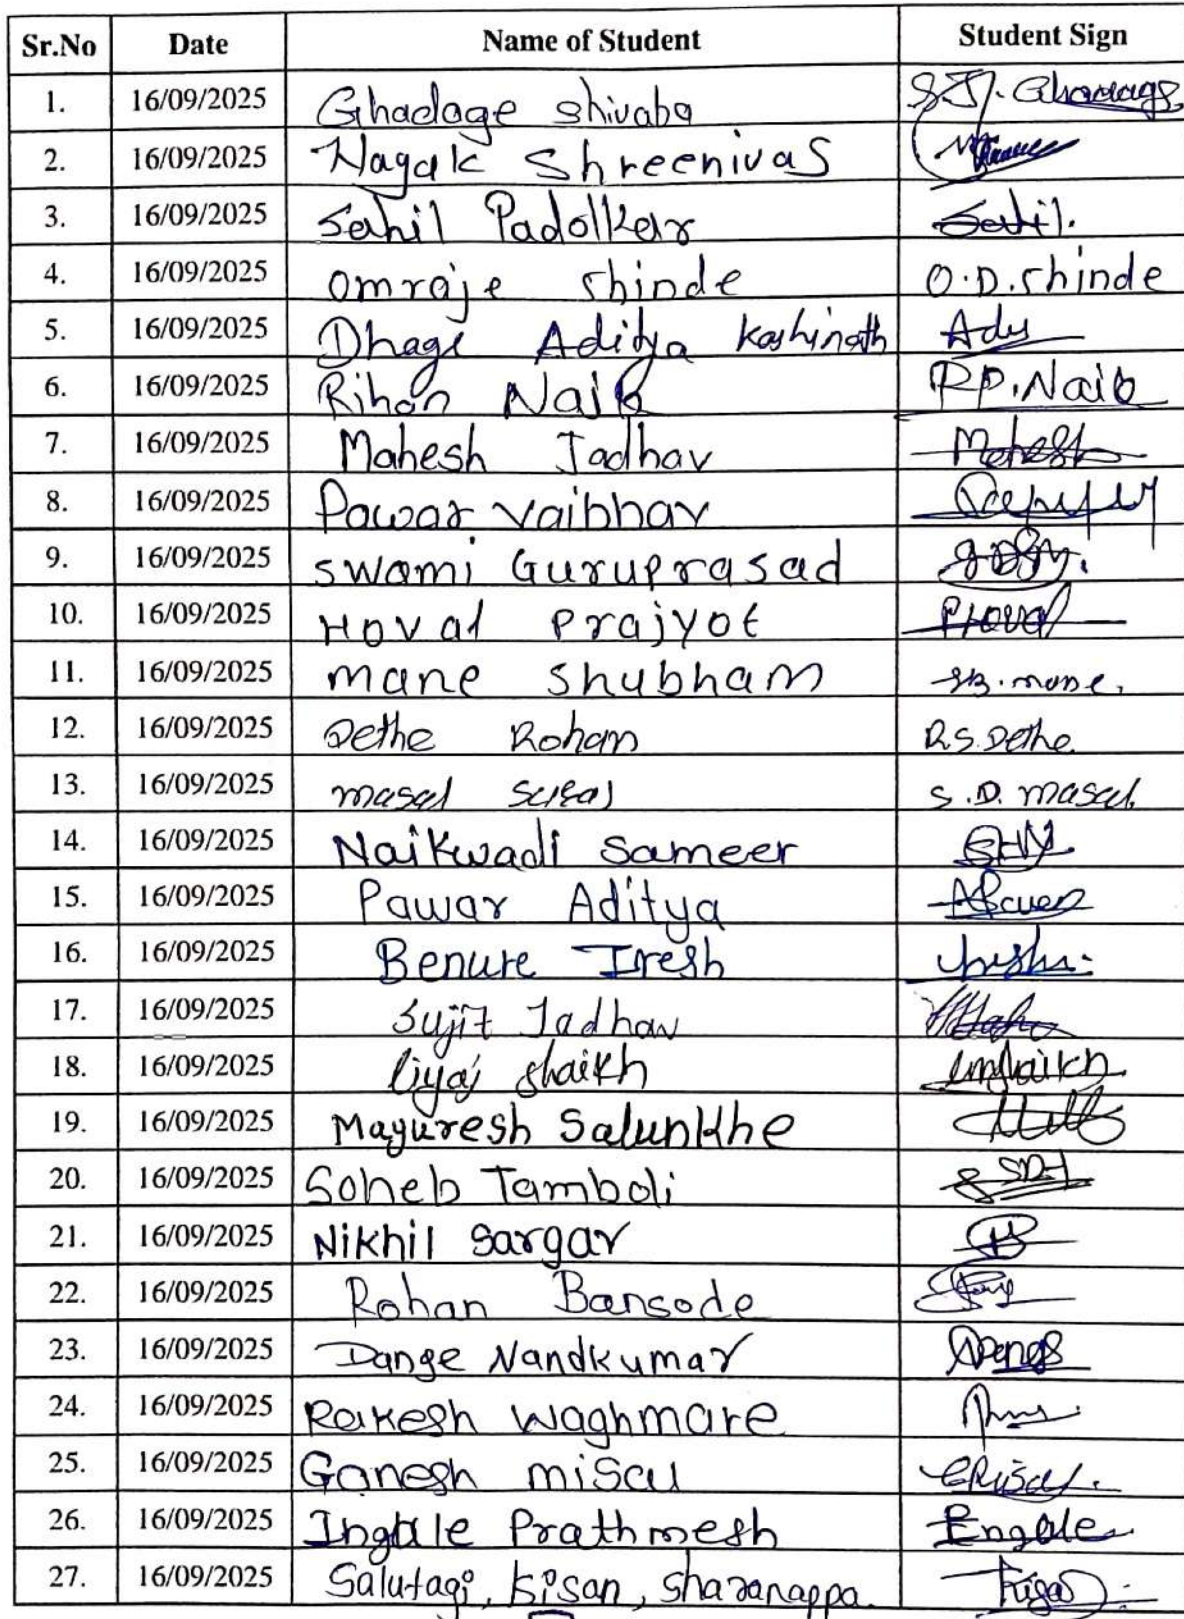 Sr.No Date Name of Student Student Sign
1. 16/09/2025 Ghadage Shivaba S.J. Ghadage
2. 16/09/2025 Nagak Shreenivas
3. 16/09/2025 Sahil Padolkar Sahil.
4. 16/09/2025 Omraje Shinde O.D.Shinde
5. 16/09/2025 Dhage Aditya Kashinath Ady
6. 16/09/2025 Rihan Naik R.P.Naik
7. 16/09/2025 Mahesh Jadhav Mahesh
8. 16/09/2025 Pawar Vaibhav
9. 16/09/2025 Swami Guruprasad
10. 16/09/2025 Hoval Prajyot PHoval
11. 16/09/2025 Mane Shubham SB.mane.
12. 16/09/2025 Dethe Rohan R.S.Dethe
13. 16/09/2025 masal Suraj S.D. masal.
14. 16/09/2025 Naikwadi Sameer
15. 16/09/2025 Pawar Aditya APawar
16. 16/09/2025 Benure Iresh
17. 16/09/2025 Sujit Jadhav
18. 16/09/2025 liyaj shaikh lmshaikh
19. 16/09/2025 Mayuresh Salunkhe
20. 16/09/2025 Soheb Tamboli
21. 16/09/2025 Nikhil Sargar
22. 16/09/2025 Rohan Bansode
23. 16/09/2025 Dange Nandkumar
24. 16/09/2025 Rakesh Waghmare
25. 16/09/2025 Ganesh misal
26. 16/09/2025 Ingale Prathmesh Engale
27. 16/09/2025 Salutagi, Kisan, Sharanappa.